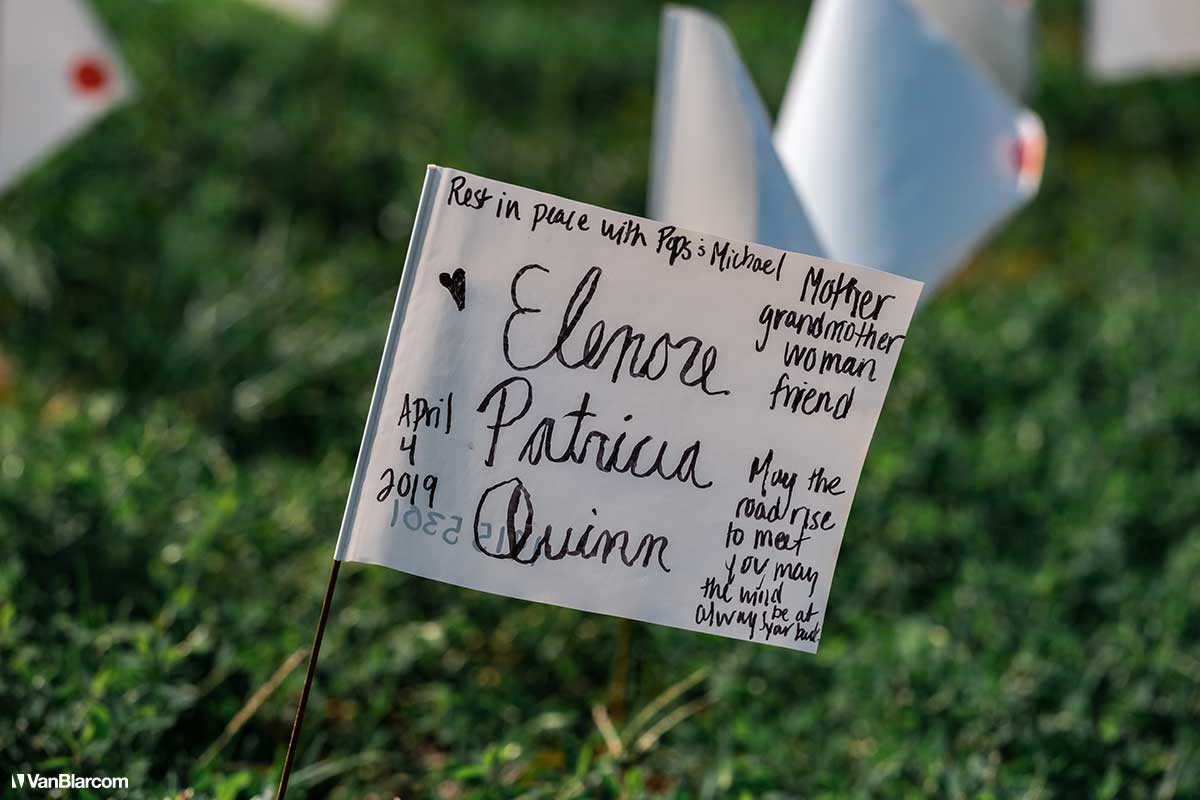 Rest in peace with Pops & Michael
Elenore
Patricia
Quinn
April
4
2019
Mother
grandmother
woman
friend
May the
road rise
to meet
you may
the wind
always be at
your back
VanBlarcom